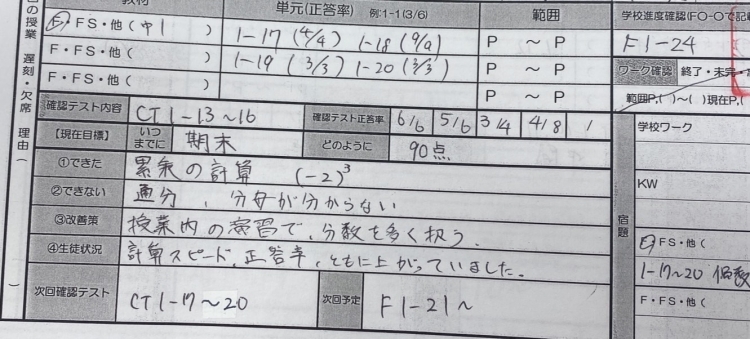 教材 単元(正答率) 例:1-1(3/6) 範囲
の授業 遅刻・欠席 理由(
)
F・FS・他(中1 ) 1-17 (4/4) 1-18 (9/9) P ~ P
F・FS・他( ) 1-19 (3/3) 1-20 (3/3) P ~ P
F・FS・他( ) P ~ P
確認テスト内容 CT1-13~16 確認テスト正答率 6/6 5/6 3/4 4/8 /
【現在目標】 いつまでに 期末 どのように 90点
①できた 累乗の計算 (-2)³
②できない 通分、分母が分からない
③改善策 授業内の演習で、分数を多く扱う。
④生徒状況 計算スピード、正答率、ともに上がっていました。
次回確認テスト CT1-17~20 次回予定 F1-21~
学校進度確認(FO-Oで記
F1-24
ワーク確認 終了・未完・
範囲P.( )~( )現在P.(
宿題
学校ワーク
KW
F・FS・他(
1-17~20 偶数
F・FS・他(